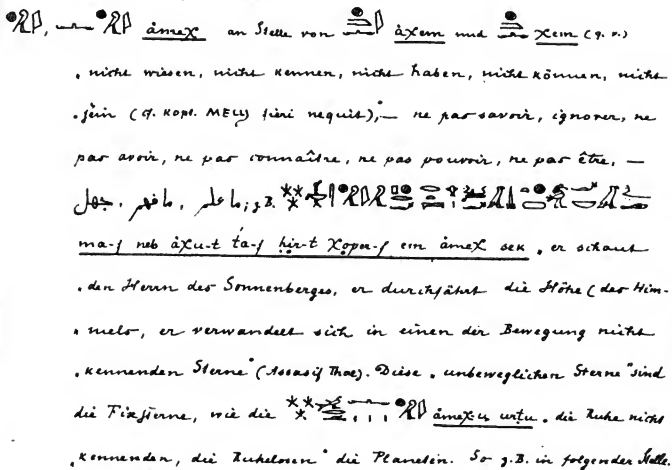 , åmeχ an Stelle von åχem und χem (q. v.)
„nicht wissen, nicht kennen, nicht haben, nicht können, nicht
„sein (cf. kopt. fieri nequit), — ne pas savoir, ignorer, ne
pas avoir, ne pas connaître, ne pas pouvoir, ne pas être, —
جهل ، ما فهم ، ما علم; z.B.
ma-f neb åχu-t ta-f hir-t χoper-f em åmeχ sek „er schaut
„den Herrn des Sonnenberges, er durchfährt die Höhe (des Him-
„mels, er verwandelt sich in einen der Bewegung nicht
„kennenden Sterne" (Assasif Thal). Diese „unbeweglichen Sterne" sind
die Fixsterne, wie die åmeχ-u urtu „die Ruhe nicht
„kennenden, die Ruhelosen" die Planeten. So z.B. in folgender Stelle